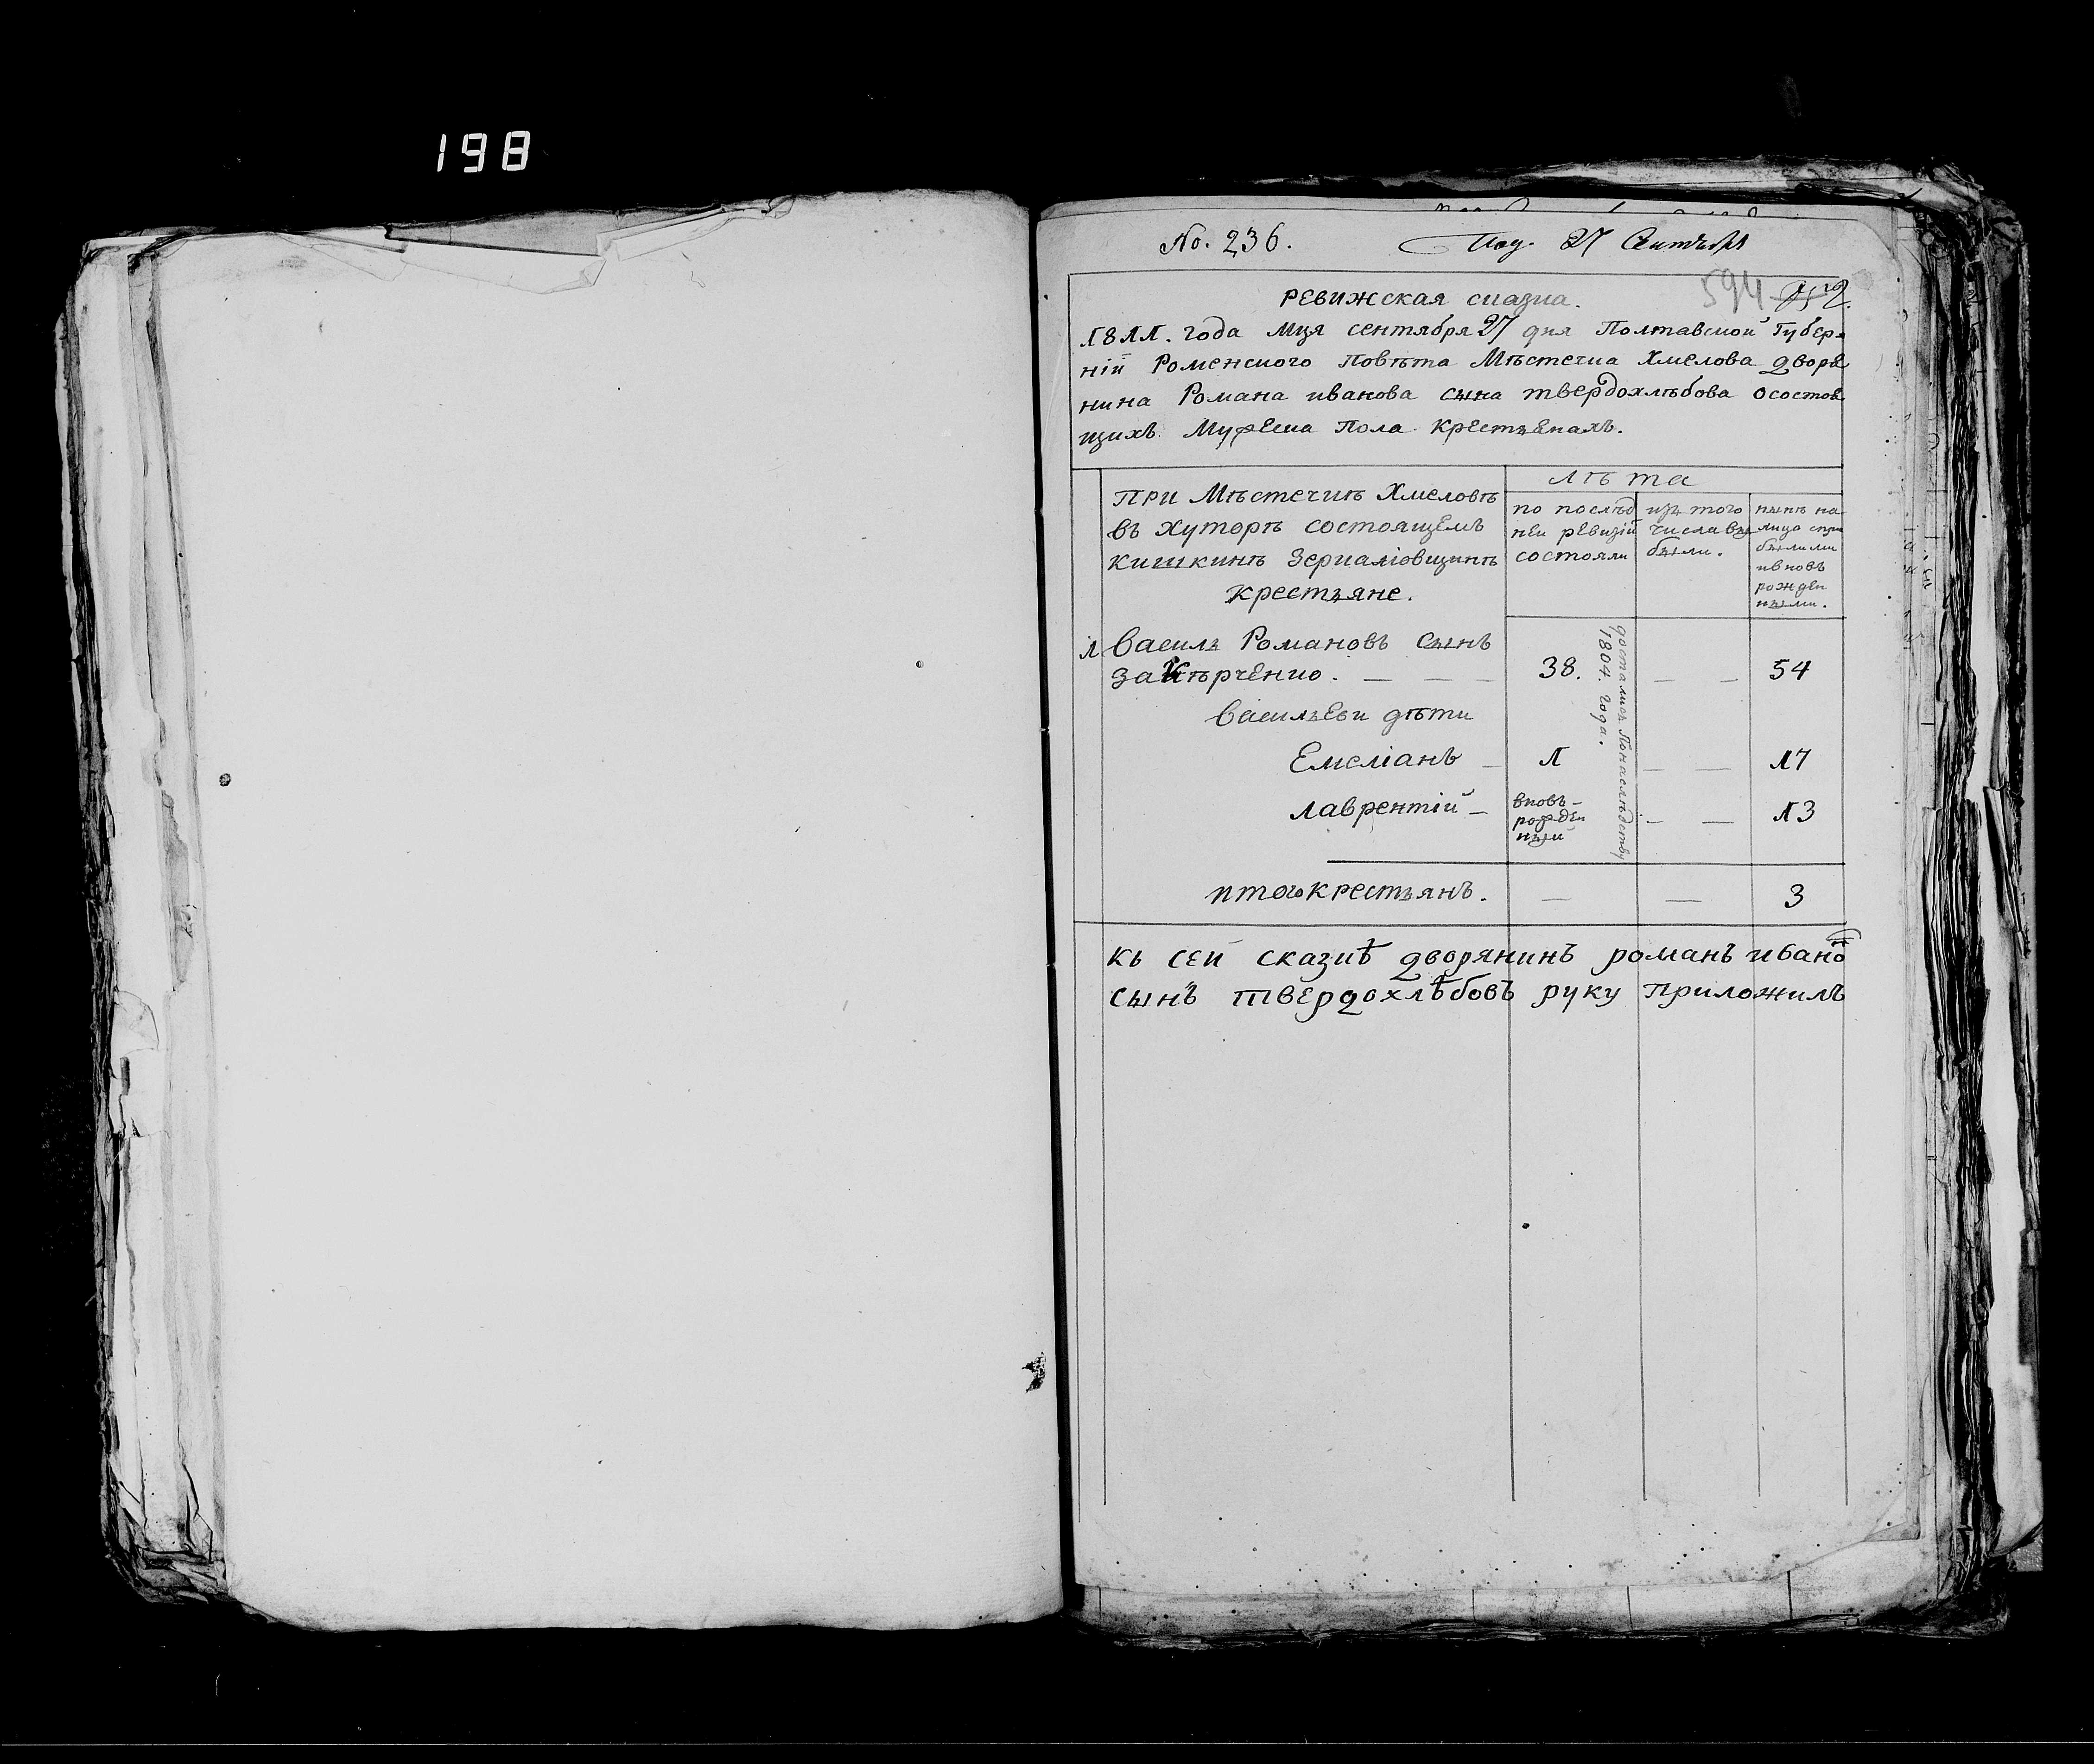 198
No. 236. Под. 27 Сентября
594
ревижская сказка.
1811. года мця сентября 27 дня Полтавской Губер=
нїи Роменского Повѣта Мѣстечка Хмелова дворя
нина Романа иванова сына твердохлѣбова осостоя
щихъ Мужеска Пола Крестьянахъ.
При Мѣстечкѣ Хмеловѣ
въ хуторѣ состоящемъ
кишкинѣ Зеркалїовщинѣ
крестьяне.
лѣта
по послѣд
ней ревизїи
состояли
изъ того
числа вы
были.
нынѣ на
лицо спри
былыми
ивновь
рожден
ными.
1 Василь Романовъ сынъ
закѣрченко. — — — 38. — — 54
досталися Понаслѣдству
1804. года.
Васильеви дѣти
Емелїанъ — 1 — — 17
лаврентїй — вновь–
рожден
ный — — 13
итого крестьянъ. — — 3
къ сей сказкѣ дворянинъ романъ ивано
сынъ твердохлѣбовъ руку приложилъ